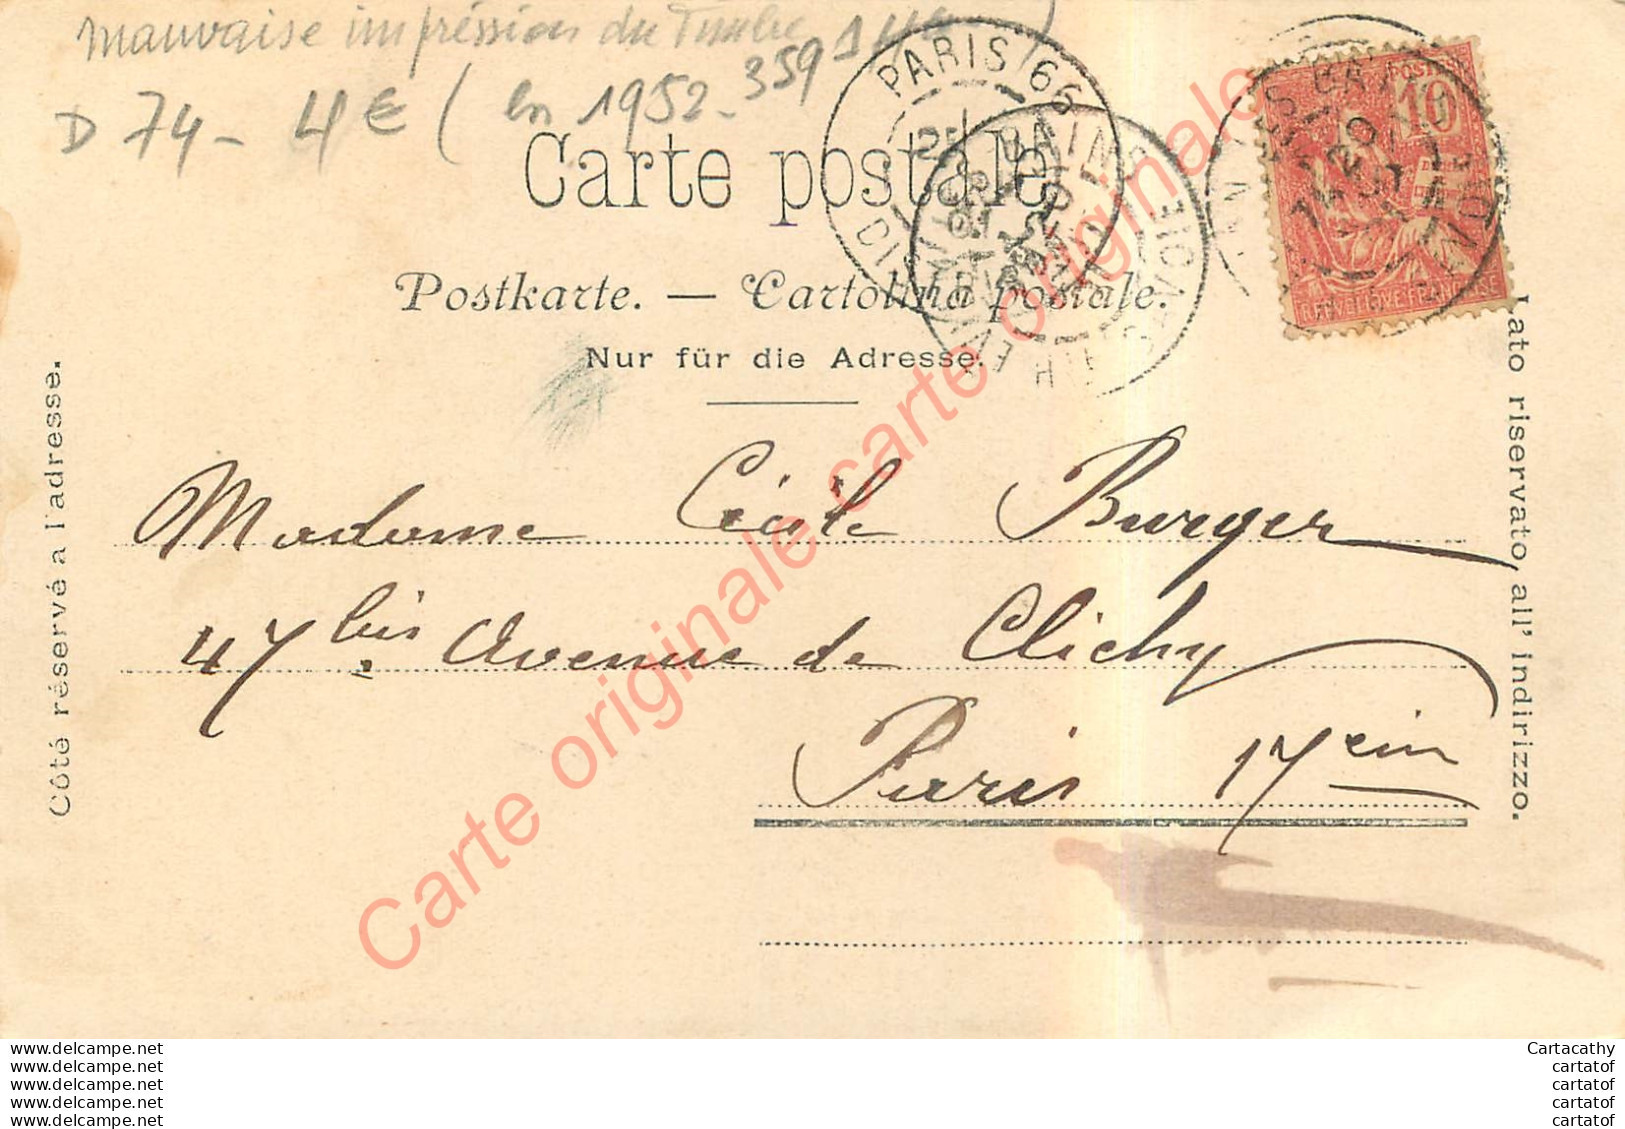 mauvaise impréssion du Timbre
D 74 - 4€ ( en 1952 - 359
Carte postale
Postkarte. — Cartolina postale.
Nur für die Adresse.
Côté réservé a l'adresse.
Lato riservato, all' indirizzo.
PARIS 66
BAINS
POSTES
10
REPUBLIQUE FRANCAISE
Madame Cécile Burger
47 bis Avenue de Clichy
Paris 17eim
Carte originale carte originale
www.delcampe.net
www.delcampe.net
www.delcampe.net
www.delcampe.net
www.delcampe.net
Cartacathy
cartatof
cartatof
cartatof
cartatof